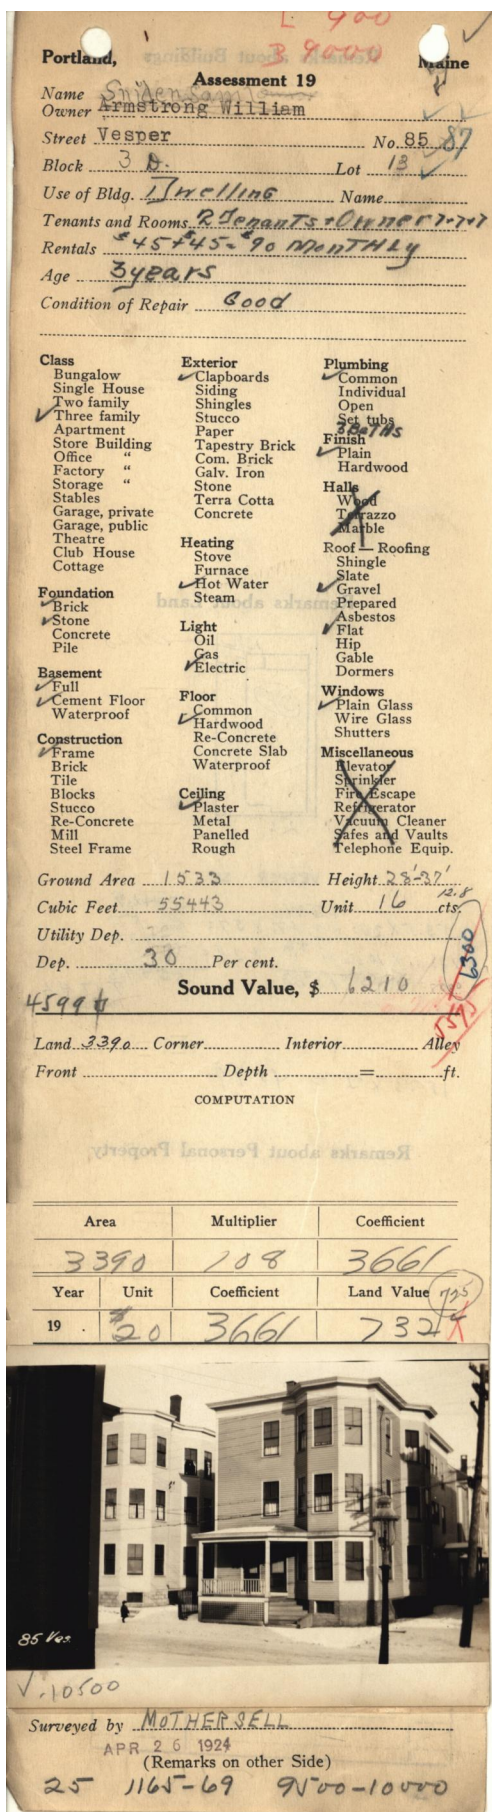 L 900
B 9000
Portland, Maine
Assessment 19
Name
Owner Armstrong William
Street Vesper No. 85 87
Block 3 D. Lot 13
Use of Bldg. Dwelling Name
Tenants and Rooms 2 Tenants + Owner 7-7-7
Rentals $45+$45=$90 MONTHLY
Age 3 years
Condition of Repair Good
Class
Bungalow
Single House
Two family
Three family
Apartment
Store Building
Office "
Factory "
Storage "
Stables
Garage, private
Garage, public
Theatre
Club House
Cottage
Foundation
Brick
Stone
Concrete
Pile
Basement
Full
Cement Floor
Waterproof
Construction
Frame
Brick
Tile
Blocks
Stucco
Re-Concrete
Mill
Steel Frame
Exterior
Clapboards
Siding
Shingles
Stucco
Paper
Tapestry Brick
Com. Brick
Galv. Iron
Stone
Terra Cotta
Concrete
Heating
Stove
Furnace
Hot Water
Steam
Light
Oil
Gas
Electric
Floor
Common
Hardwood
Re-Concrete
Concrete Slab
Waterproof
Ceiling
Plaster
Metal
Panelled
Rough
Plumbing
Common
Individual
Open
Set tubs
3 BaTHs
Finish
Plain
Hardwood
Halls
Wood
Terrazzo
Marble
Roof — Roofing
Shingle
Slate
Gravel
Prepared
Asbestos
Flat
Hip
Gable
Dormers
Windows
Plain Glass
Wire Glass
Shutters
Miscellaneous
Elevator
Sprinkler
Fire Escape
Refrigerator
Vacuum Cleaner
Safes and Vaults
Telephone Equip.
Ground Area 1533 Height 28'-37'
12.8
Cubic Feet 55443 Unit 16 cts.
Utility Dep.
Dep. 30 Per cent.
6300
Sound Value, $ 6210
4599
Land 3390 Corner Interior Alley
Front Depth = ft.
COMPUTATION
Remarks about Personal Property
Area Multiplier Coefficient
3390 108 3661
Year Unit Coefficient Land Value 725
19 . $20 3661 732
85 Ves.
√ 10500
Surveyed by MOTHERSELL
APR 26 1924
(Remarks on other Side)
25 1165-69 9500-10000